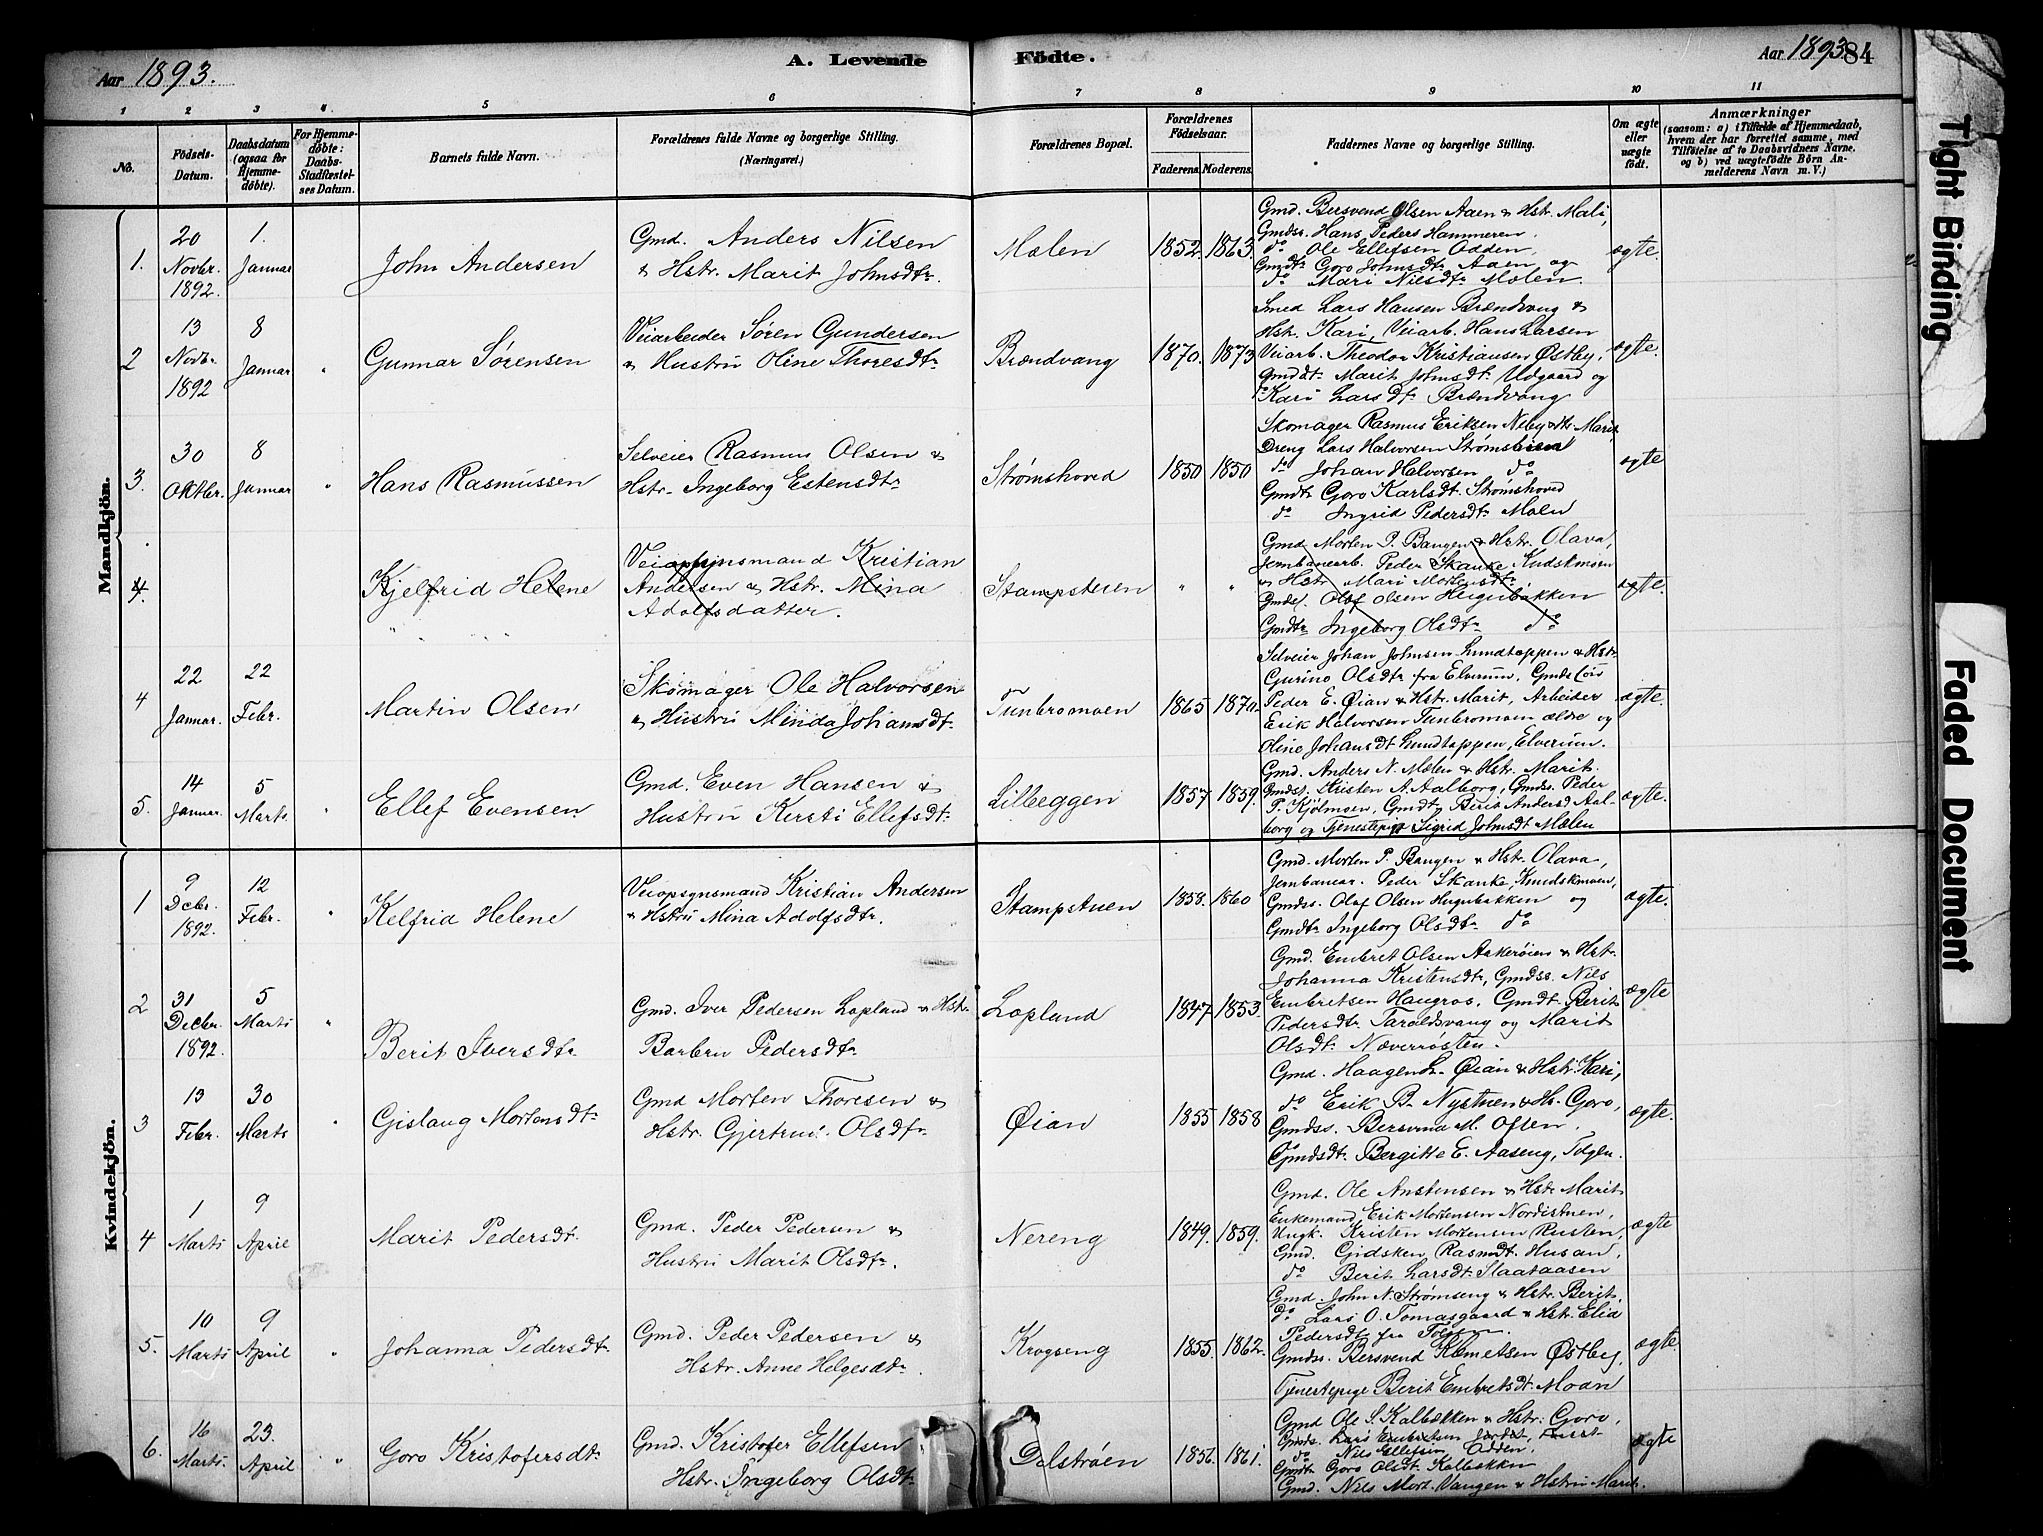 Aar 1893.
A. Levende
Födte.
Aar 1893
84
1 2 3 4 5 6 7 8 9 10 11
No.
Födsels-Datum.
Daabsdatum (ogsaa for Hjemmedöbte).
For Hjemmedöbte: Daabs-Stadfæstelses Datum.
Barnets fulde Navn.
Forældrenes fulde Navne og borgerlige Stilling. (Næringsvei.)
Forældrenes Bopæl.
Forældrenes Födselsaar.
Faderens. Moderens.
Faddernes Navne og borgerlige Stilling.
Om ægte eller uægte födt.
Anmærkninger
(saasom: a) i Tilfælde af Hjemmedaab, hvem der har forrettet samme, med Tilföielse af to Daabsvidners Navne, og b) ved uægtefödte Börn Anmelderens Navn m. V.)
Mandkjön.
1.
20 Novbr. 1892.
1. Januar
John Andersen
Gmd. Anders Nilsen
& Hstr. Marit Johnsdtr.
Mælen
1852. 1863.
Gmd. Bersvend Olsen Aaen & Hstr. Mali,
Gmdsr. Hans Peders Hammeren,
do Ole Ellefsen Odden,
Gmdtr. Goro Johnsdtr. Aaen og
do Mari Nilsdtr. Mælen.
ægte.
2
13 Novbr. 1892
8 Januar
"
Gunnar Sørensen
Veiarbeider Søren Gundersen
& Hustru Oline Thoresdtr.
Brændvang
1870. 1873
Smed Lars Hansen Brændvang &
Hstr. Kari, Veiarb. Hans Larsen
Veiarb. Theodor Kristiansen Østby,
Gmddtr. Marit Johnsdt. Udgaard og
do Kari Larsdtr. Brændvang
ægte.
3.
30 Oktbr.
8 Januar
"
Hans Rasmussen
Selveier Rasmus Olsen &
Hstr. Ingeborg Estensdtr
Strømshoved
1850 1850
Skomager Rasmus Eriksen Neby & Hs. Marit,
Dreng Lars Halvorsen
do Johan Halvorsen do
Gmdtr. Goro Karlsdt. Strømshoved
do Ingrid Pedersdtr. Mælen
ægte
4.
Kjelfrid Helene
" "
Veiopsynsmand Kristian
Andersen & Hstr. Mina
Adolfsdatter.
Stampstuen
" "
Gmd. Morten P. Bangen & Hstr. Olava,
Jernbanearb. Peder Skanke,
& Hstr. Mari Mortensdtr.
Gmdsl. Olaf Olsen Hegubakken
Gmdtr. Ingeborg Olsdtr do
ægte.
4
22 Januar.
22 Febr.
Martin Olsen
Skomager Ole Halvorsen
& Hustru Minda Johansdtr.
Tunbromoen
1865 1870.
Selveier Johan Johnsen Lundtappen & Hstr.
Gurino Olsdtr fra Elverum,
Peder E. Øian & Hstr. Marit, Arbeider
Erik Halvorsen Tunbromoen ældre og
Oline Johansdt. Lundtappen, Elverum.
ægte.
5.
14 Januar.
5 Marts
"
Ellef Evensen
Gmd. Even Hansen &
Hustru Kersti Ellefsdtr.
Lilleeggen
1857 1859.
Gmd. Anders N. Mælen & Hstr. Marit.
Gmdsl. Kristen A. Aalborg, Gmdss. Peder
P. Kjølmoen, Gmdt. Berit Andersd Aal-
borg og Tjenestepige Sigrid Johnsdt Mælen
ægte.
Kvindekjön.
1
9 Decbr. 1892.
12 Febr.
"
Kelfrid Helene
Veiopsynsmand Kristian Andersen
& Hstru Mina Adolfsdtr.
Stampstuen
1858. 1860
Gmd. Morten P. Bangen & Hstr. Olava,
Jernbanear. Peder Skanke,
Gmdss. Olaf Olsen Hugubakken og
Gmdtr. Ingeborg Olsdtr. do
ægte.
2
31 Decbr. 1892.
5 Marts
"
Berit Iversdtr
Gmd. Iver Pedersen Lopland & Hstr.
Barbru Pedersdtr.
Lopland
1847 1853.
Gmd. Embret Olsen Aakerøien & Hst.
Johanna Kristensdtr, Gmdss. Nils
Embretsen Haugros, Gmdt. Berit
Pedersdtr. Taraldsvang og Marit
Olsdt. Næverrøsten.
ægte
3
13 Febr.
30 Marts
"
Gislaug Mortensdtr.
Gmd Morten Thoresen &
Hstr. Gjertrud Olsdtr.
Øian
1855 1858
Gmd. Haagen L. Øian & Hstr. Kari,
do Erik B. Nystuen & Hs. Goro,
Gmdss. Bersvend M. Often.
Gmdsdt. Bergitte E. Aaseng, Tolgen.
ægte.
4
1 Marts
9 April
Marit Pedersdt.
Gmd. Peder Pedersen &
Hustru Marit Olsdtr.
Nereng
1849. 1859.
Gmd. Ole Anstensen & Hstr Marit
Enkemand Erik Mortensen Nordistuen,
Ungk. Kristen Mortensen Rusten,
Gmd. Gjidsken Rasmdt. Husan,
do Berit Larsdt. Slaataasen
ægte
5.
10 Marts
9 April
"
Johanna Pedersdtr.
Gmd. Peder Pedersen &
Hstr. Anne Helgesdtr.
Krogseng
1855. 1862.
Gmd. John N. Strømseng & Hstr. Berit,
do Lars O. Tomasgaard & Hstr. Elid
Pedersdt. fra Tolgen.
Gmdss. Bersvend Klemetsen Østby,
Tjenestepige Berit Embretsdt Moan
ægte.
6.
16 Marts.
23. April
"
Goro Kristofersdtr.
Gmd. Kristofer Ellefsen
Hstr. Ingeborg Olsdtr.
Dalstrøen
1856. 1861.
Gmd Ole S. Kalbækken & Hstr. Goro,
Gmds. Lars Embretsen Jordet,
do Nils Ellefsen Odden,
Gmdt. Goro Olsdt. Kalbækken
Gmd. Nils Mort. Vangen & Hstru Marit.
ægte
Tight Binding
Faded Document